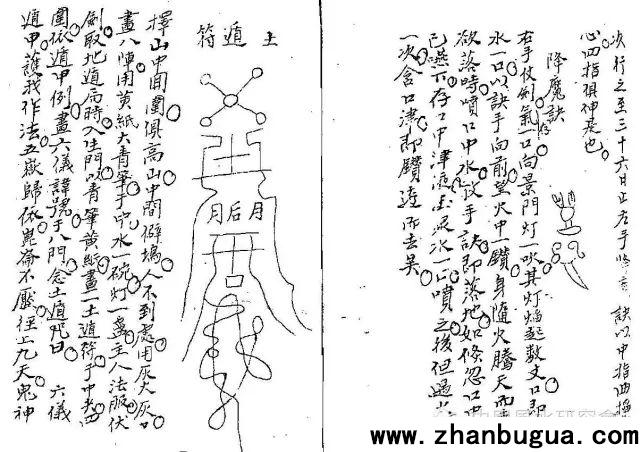 次行之至三十六日止右手
心四指俱伸是也
降魔訣
右手仗劍氣一口向景門灯一吹其灯焰起數丈口即
水一口以訣手向前望火中一鑽身隨火騰天而
欲落時噴口中水放手訣即落地如條忽口中
已燕下存口中津液或尿水一口噴之後但遇火
一次含口津即鑽逵而去矣
土遁符
月后月
擇山中團圓俱高山中間僻塢人不到處用灰大灰口
畫八陣用黃紙大青筆于中水一碗灯一盞主人法服伏
劍取地遁局時入生門以青筆黃紙畫一土遁符于中央四
圍依遁甲例畫六儀諱號于八門念土遁咒曰 六儀
遁甲護我作法五嶽歸依崑崙不壓徑上九天鬼神
www.zhanbugua.com